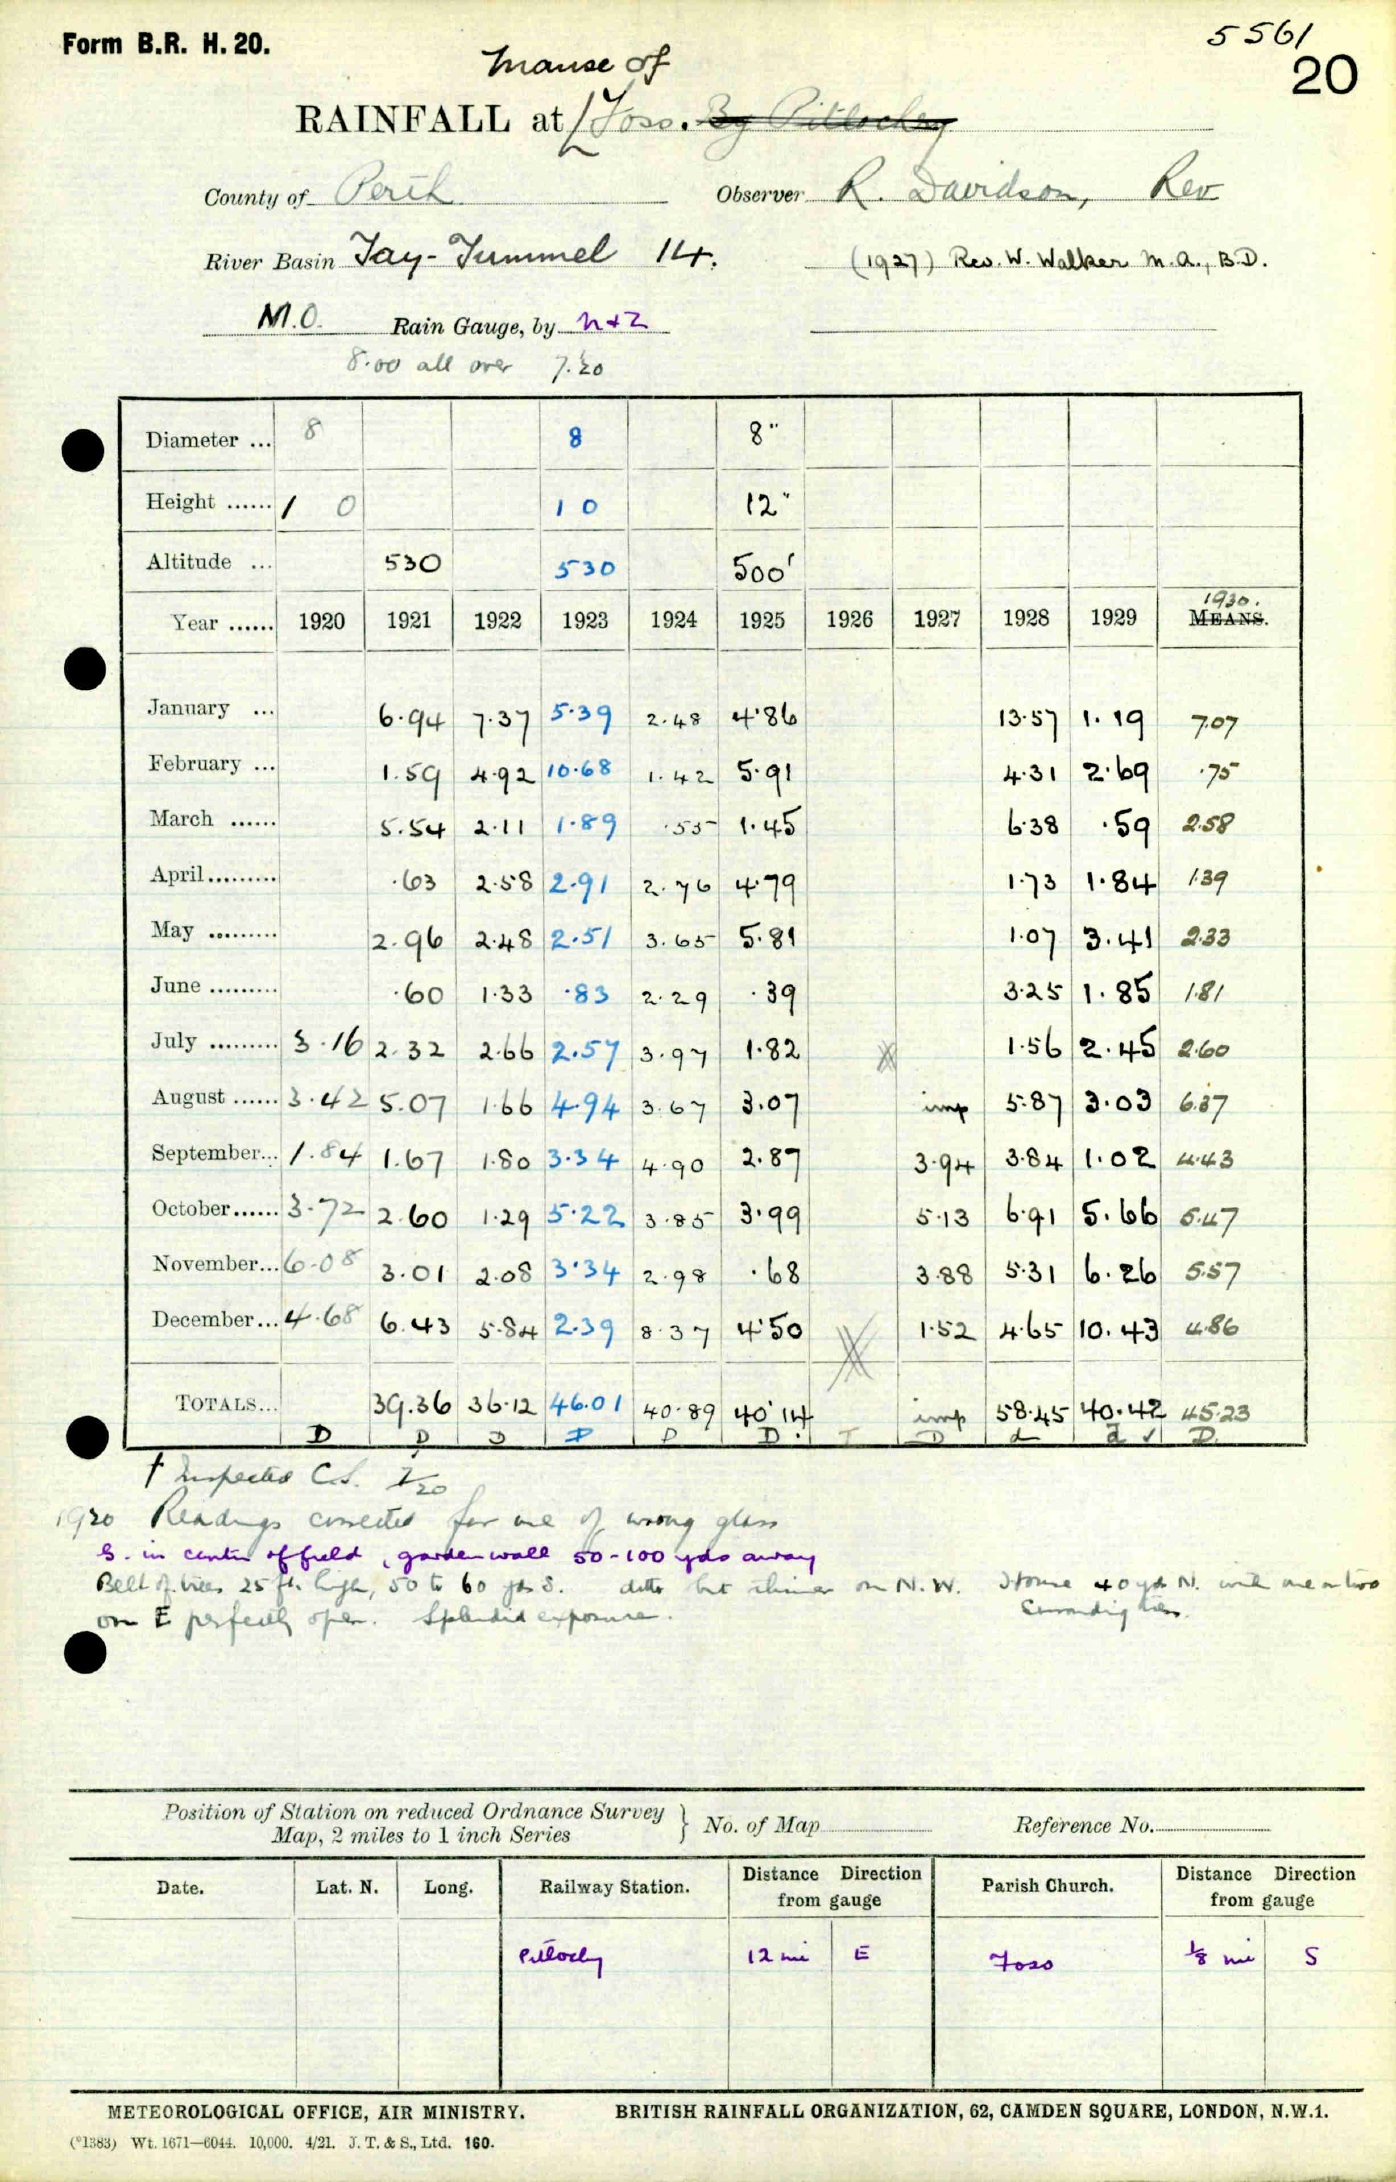 Form B.R. H. 20.
5561
20
Manse of
RAINFALL at Foss. By Pitlochry
County of Perth Observer R. Davidson, Rev
River Basin Tay-Tummel 14. (1927) Rev. W. Walker M.A., B.D.
M.O. Rain Gauge, by N+Z
8.00 all over 7.20
Diameter ... 8 8 8"
Height ...... 1 0 1 0 12"
Altitude ... 530 530 500'
1930.
Year ...... 1920 1921 1922 1923 1924 1925 1926 1927 1928 1929 MEANS.
January ... 6.94 7.37 5.39 2.48 4.86 13.57 1.19 7.07
February ... 1.59 4.92 10.68 1.42 5.91 4.31 2.69 .75
March ...... 5.54 2.11 1.89 .55 1.45 6.38 .59 2.58
April......... .63 2.58 2.91 2.76 4.79 1.73 1.84 1.39
May ......... 2.96 2.48 2.51 3.65 5.81 1.07 3.41 2.33
June ......... .60 1.33 .83 2.29 .39 3.25 1.85 1.81
July ......... 3.16 2.32 2.66 2.57 3.97 1.82 1.56 2.45 2.60
August ...... 3.42 5.07 1.66 4.94 3.67 3.07 imp 5.87 3.03 6.37
September... 1.84 1.67 1.80 3.34 4.90 2.87 3.94 3.84 1.02 4.43
October...... 3.72 2.60 1.29 5.22 3.85 3.99 5.13 6.91 5.66 5.47
November... 6.08 3.01 2.08 3.34 2.98 .68 3.88 5.31 6.26 5.57
December... 4.68 6.43 5.84 2.39 8.37 4.50 1.52 4.65 10.43 4.86
TOTALS... 39.36 36.12 46.01 40.89 40.14 imp 58.45 40.42 45.23
D D D D D D D d d ✓ D.
† Inspected C.S. 7/20
1920 Readings corrected for use of wrong glass
G. in center of field, garden wall 50-100 yds away
Belt of trees 25 ft. high, 50 to 60 yds S. ditto but thinner on N.W. House 40 yds N. with one or two
surrounding trees.
on E perfectly open. Splendid exposure.
Position of Station on reduced Ordnance Survey
Map, 2 miles to 1 inch Series } No. of Map Reference No.
Date. Lat. N. Long. Railway Station. Distance Direction from gauge Parish Church. Distance Direction from gauge
Pitlochry 12 mi E Foss 1/8 mi S
METEOROLOGICAL OFFICE, AIR MINISTRY. BRITISH RAINFALL ORGANIZATION, 62, CAMDEN SQUARE, LONDON, N.W.1.
(*1383) Wt. 1671—6044. 10,000. 4/21. J. T. & S., Ltd. 160.